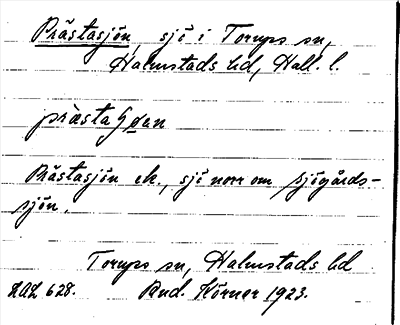 Prästasjön, sjö i Torups sn,
Halmstads hd, Hall. l.
prästa
Prästasjön ek., sjö norr om Sjögårds-
sjön.
Torups sn, Halmstads hd
LAL 628. And. Körner 1923.